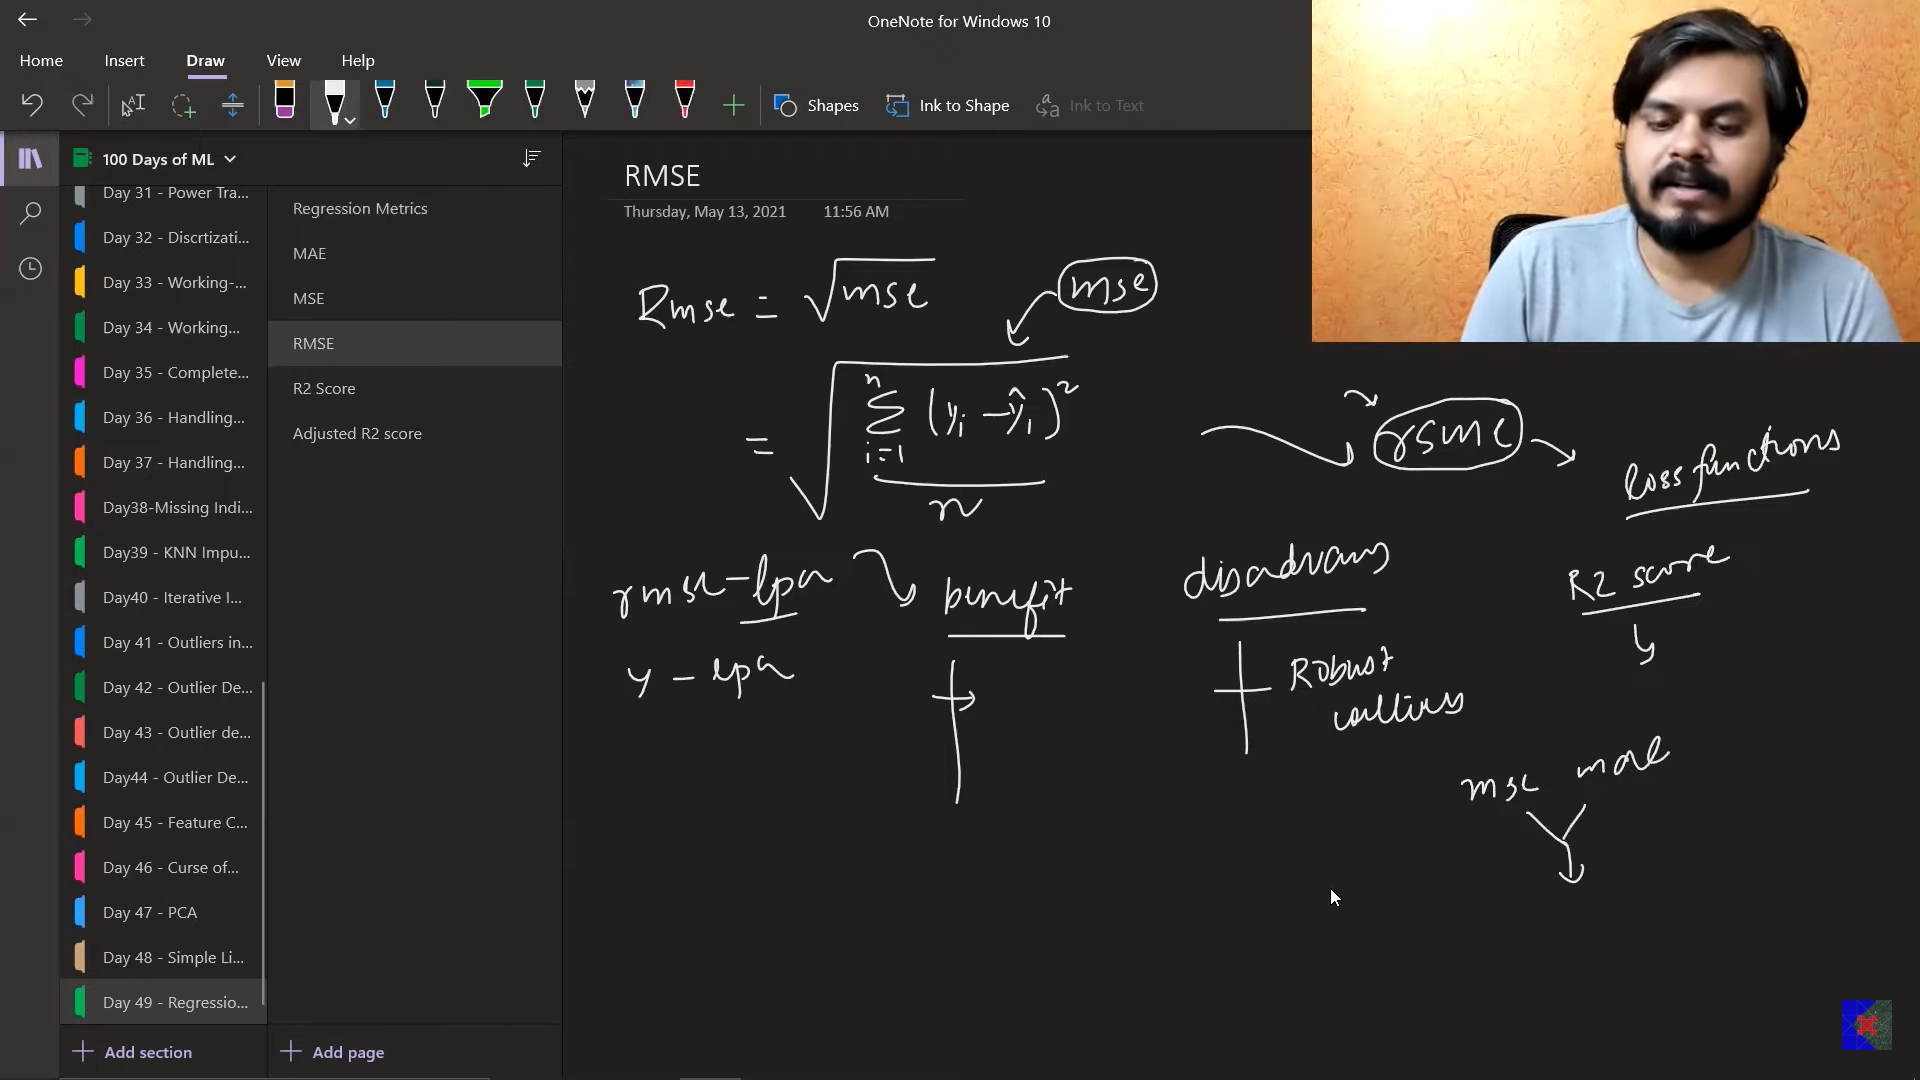 OneNote for Windows 10
Home Insert Draw View Help
Shapes Ink to Shape Ink to Text
100 Days of ML
Day 31 - Power Tra...
Day 32 - Discrtizati...
Day 33 - Working-...
Day 34 - Working...
Day 35 - Complete...
Day 36 - Handling...
Day 37 - Handling...
Day38-Missing Indi...
Day39 - KNN Impu...
Day40 - Iterative I...
Day 41 - Outliers in...
Day 42 - Outlier De...
Day 43 - Outlier de...
Day44 - Outlier De...
Day 45 - Feature C...
Day 46 - Curse of...
Day 47 - PCA
Day 48 - Simple Li...
Day 49 - Regressio...
Add section
Regression Metrics
MAE
MSE
RMSE
R2 Score
Adjusted R2 score
Add page
RMSE
Thursday, May 13, 2021 11:56 AM
Rmse = √mse mse
= √ n Σ i=1 (yi - ŷi)² n
rsme
loss functions
rmse - lpa benefit disadvans R2 score
y - lpa
Robust
outliers
mse mae